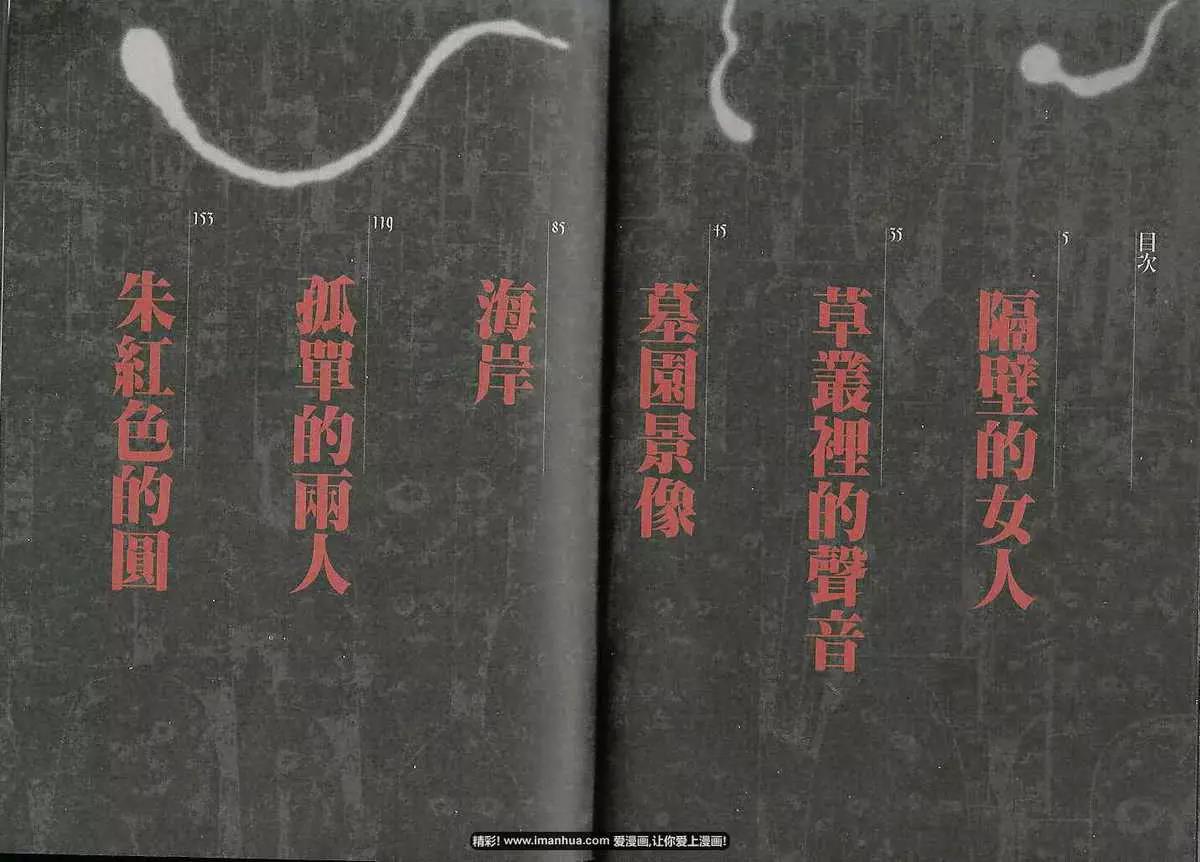 目次
5
隔壁的女人
35
草叢裡的聲音
45
墓園景像
85
海岸
119
孤單的兩人
153
朱紅色的圓
精彩! www.imanhua.com 爱漫画,让你爱上漫画!